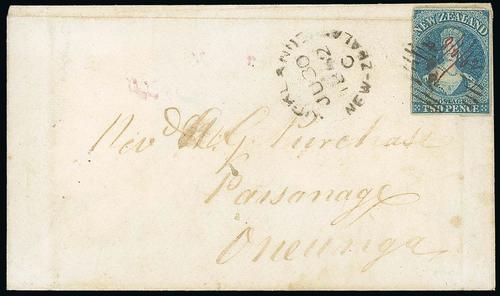 NEW ZEALAND
POSTAGE
TWO PENCE
NEW-ZEALAND
JU 30
1862
C
Revd A.G. Purchas
Parsonage
Onehunga